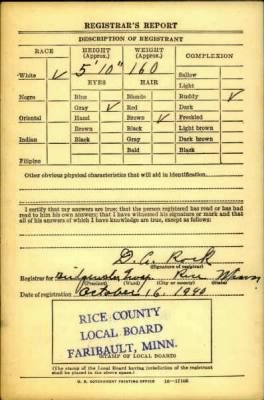 REGISTRAR'S REPORT
DESCRIPTION OF REGISTRANT
RACE HEIGHT (Approx.) WEIGHT (Approx.) COMPLEXION
White ✓ 5' 10" 160 Sallow
EYES HAIR Light
Negro Blue Blonde Ruddy ✓
Gray ✓ Red Dark
Oriental Hazel Brown ✓ Freckled
Brown Black Light brown
Indian Black Gray Dark brown
Bald Black
Filipino
Other obvious physical characteristics that will aid in identification
I certify that my answers are true; that the person registered has read or has
read to him his own answers; that I have witnessed his signature or mark and that
all of his answers of which I have knowledge are true, except as follows:
D. A. Rock
(Signature of registrar)
Registrar for Bridgewater Twsp Rice Minn
(Precinct) (Ward) (City or county) (State)
Date of registration October 16, 1940
RICE COUNTY
LOCAL BOARD
FARIBAULT, MINN.
(STAMP OF LOCAL BOARD)
(The stamp of the Local Board having jurisdiction of the registrant
shall be placed in the above space.)
U. S. GOVERNMENT PRINTING OFFICE